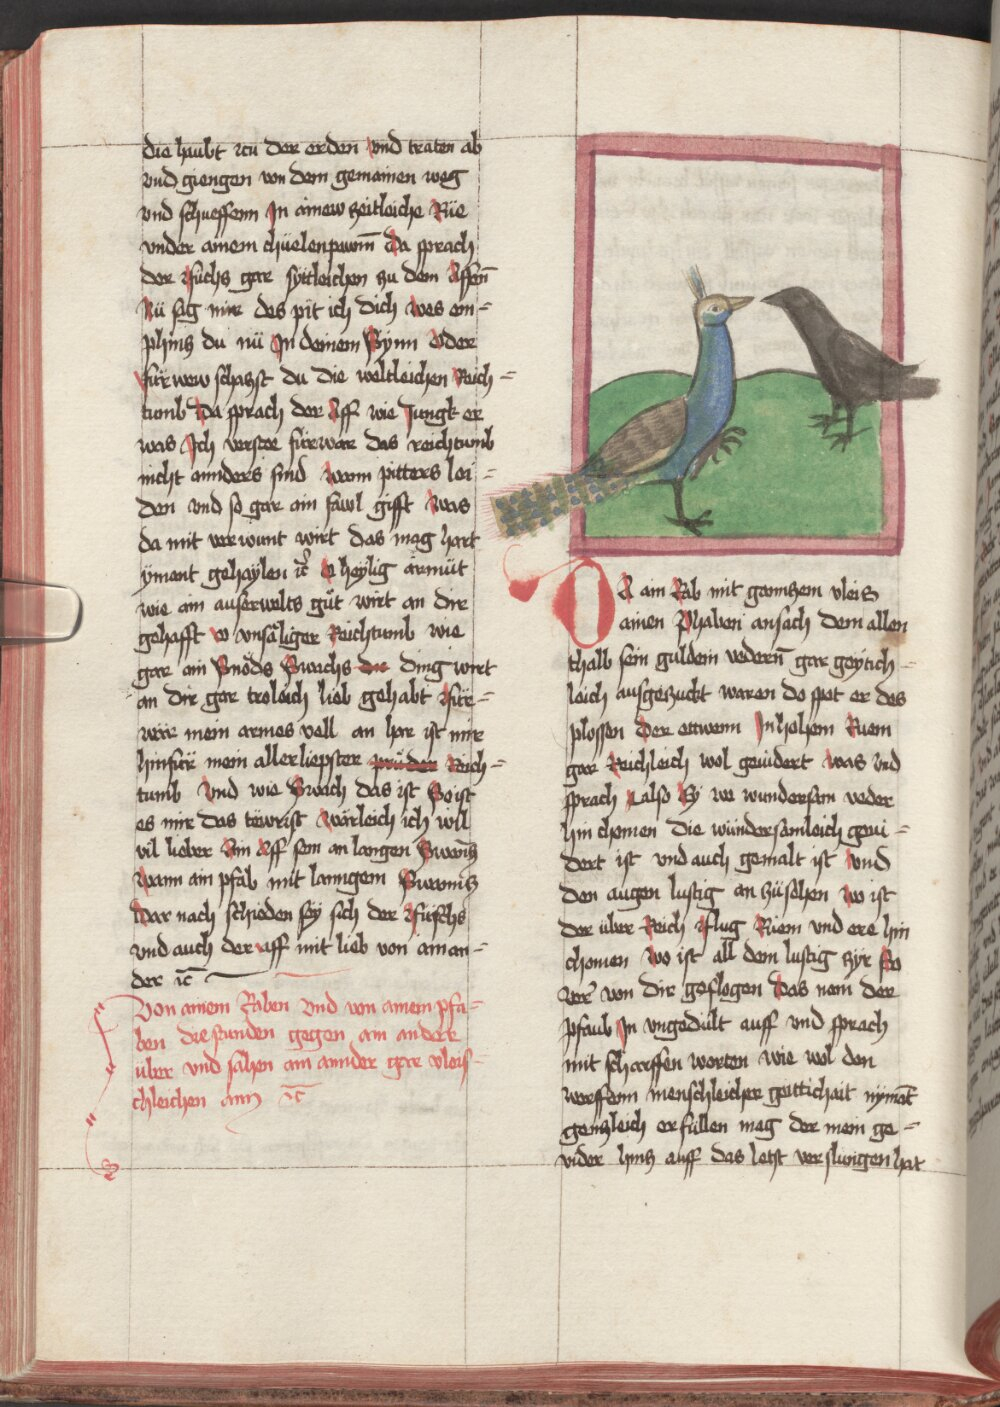 die haubt zcu der erden vnd traten ab
vnd giengen von dem gemainen weg
vnd schueffenn In ainew zeitleiche Rüe
vnder ainem chüelenpawm̄ Da sprach
der fuchs gar sytleichen zu dem Affen̄
Nü sag mir des pit ich dich wes em-
phins du nü In deinem Synn Oder
für wew schaczst du die weltleichen Reich-
tumb Da sprach der Aff wie Jungk er
was Ich verstee fürwar das reichtumb
nicht annders sind wann pitters lei-
den vnd so gar ain fawl gifft was
da mit verwunt wirt das mag hart
yment gehaylen ꝛc̄ O heylig armüt
wie ain auserwelts gůt wirt an dir
gehafft vo vnsäliger Reichtumb wie
gar ain Snöds Swachs die ding wirt
an dir gar troleich lieb gehabt für-
war mein armes vell an har ist mir
hinfür mein allerliepster prüder Reich-
tumb Vnd wie Swach das ist So ist
es mir das tewrist wärleich ich will
vil lieber Ain Aff sein an langen Swancz
wann ain pfab mit lanngem Swanncz
Dar nach schieden sy sich der fuschs
vnd auch der Aff mit lieb von ainan-
der ꝛc̄
Von ainem Raben Vnd von ainem pfa-
ben die stunden gegen ain ander
über vnd sahen ain annder gar vleis-
chleichen ann ꝛc̄
DA ain Rab mit gannczem vleis
ainen Phaben ansach dem allen
thalb sein guldem vedern̄ gar geytich-
leich ausgezuckt waren do spot er des
plossen Der ettwenn In hohem Ruem
gar Reichleich wol geuidert was vnd
sprach also Sy wo wundersam veder
hin chomen die wündersamleich geui-
dert ist vnd auch gemalt ist vnd
den augen lustig an züsehen wo ist
der über Reich flug Ruem vnd ere hin
chomen wo ist all dem lustig zyr So
verr von dir geflogen Das nam der
pfaub In vngedült auff vnd sprach
mit scharffen worten wie wol den
werffenn menschleicher geittichait nÿmāt
genczleich erfüllen mag der mein ge-
vider hincz auff das letzt verslungen hat